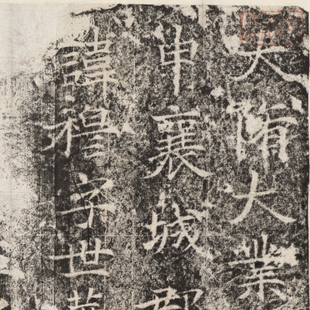 大隋大業
申襄城郡
諱穆子世